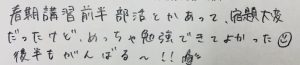 春期講習前半 部活とかあって、宿題大変
だったけど、めっちゃ勉強できてよかった☺
後半もがんばる〜!!